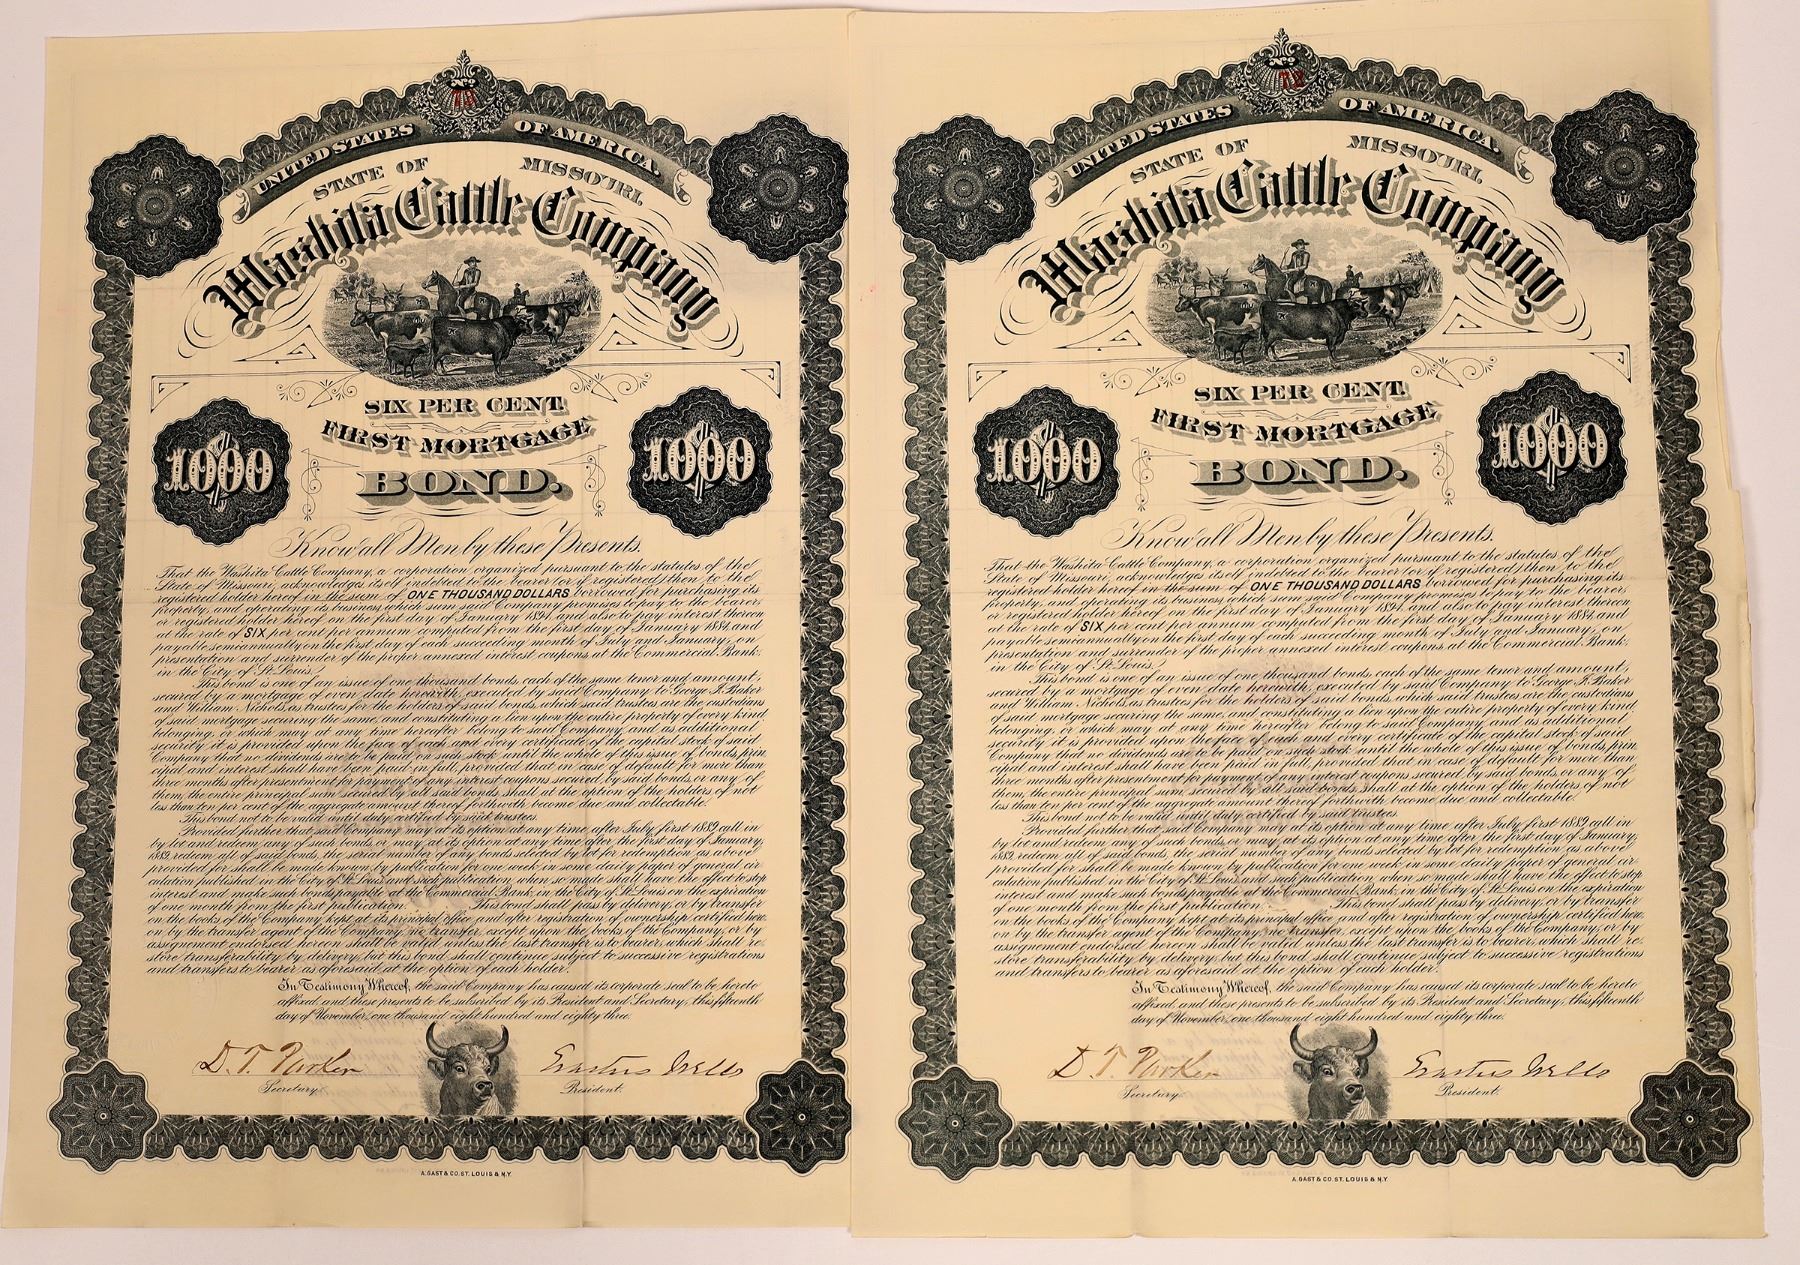 No
73
UNITED STATES OF AMERICA.
STATE OF MISSOURI.
Washita Cattle Company
SIX PER CENT.
FIRST MORTGAGE
BOND.
$1000
$1000
Know all Men by these Presents.
That the Washita Cattle Company, a corporation organized pursuant to the statutes of the
State of Missouri, acknowledges itself indebted to the bearer (or if registered) then to the
registered holder hereof in the sum of ONE THOUSAND DOLLARS borrowed for purchasing its
property, and operating its business, which sum said Company promises to pay to the bearer,
or registered holder hereof on the first day of January 1894, and also to pay interest thereon
at the rate of SIX per cent per annum computed from the first day of January 1884, and
payable semiannually on the first day of each succeeding month of July and January, on
presentation and surrender of the proper annexed interest coupons, at the Commercial Bank,
in the City of St. Louis.
This bond is one of an issue of one thousand bonds, each of the same tenor and amount,
secured by a mortgage of even date herewith, executed by said Company to George F. Baker
and William Nichols, as trustees for the holders of said bonds, which said trustees are the custodians
of said mortgage securing the same, and constituting a lien upon the entire property of every kind,
belonging, or which may at any time hereafter belong to said Company, and as additional
security it is provided upon the face of each and every certificate of the capital stock of said
Company that no dividends are to be paid on such stock until the whole of this issue of bonds, prin
cipal and interest shall have been paid in full, provided that in case of default for more than
three months after presentment for payment of any interest coupons secured by said bonds, or any of
them, the entire principal sum secured by all said bonds shall at the option of the holders of not
less than ten per cent of the aggregate amount thereof forthwith become due and collectable.
This bond not to be valid until duly certified by said trustees.
Provided further that said Company may at its option at any time after July first 1889, call in
by lot and redeem any of such bonds, or may at its option at any time after the first day of January,
1889, redeem all of said bonds, the serial number of any bonds selected by lot for redemption as above
provided for shall be made known by publication for one week in some daily paper of general cir
culation published in the City of St. Louis and such publication when so made shall have the effect to stop
interest and make such bonds payable at the Commercial Bank, in the City of St. Louis on the expiration
of one month from the first publication. This bond shall pass by delivery, or by transfer
on the books of the Company kept at its principal office and after registration of ownership certified here
on by the transfer agent of the Company, no transfer, except upon the books of the Company, or by
assignment endorsed hereon shall be valid unless the last transfer is to bearer, which shall re
store transferability by delivery, but this bond shall continue subject to successive registrations
and transfers to bearer as aforesaid at the option of each holder.
In Testimony Whereof, the said Company has caused its corporate seal to be hereto
affixed, and these presents to be subscribed by its President and Secretary, this fifteenth
day of November, one thousand eight hundred and eighty three.
D. T. Parker
Secretary.
Erastus Wells
President.
A. GAST & CO. ST. LOUIS & N.Y.
No
UNITED STATES OF AMERICA.
STATE OF MISSOURI.
Washita Cattle Company
SIX PER CENT.
FIRST MORTGAGE
BOND.
$1000
$1000
Know all Men by these Presents.
That the Washita Cattle Company, a corporation organized pursuant to the statutes of the
State of Missouri, acknowledges itself indebted to the bearer (or if registered) then to the
registered holder hereof in the sum of ONE THOUSAND DOLLARS borrowed for purchasing its
property, and operating its business, which sum said Company promises to pay to the bearer,
or registered holder hereof on the first day of January 1894, and also to pay interest thereon
at the rate of SIX per cent per annum computed from the first day of January 1884, and
payable semiannually on the first day of each succeeding month of July and January, on
presentation and surrender of the proper annexed interest coupons, at the Commercial Bank,
in the City of St. Louis.
This bond is one of an issue of one thousand bonds, each of the same tenor and amount,
secured by a mortgage of even date herewith, executed by said Company to George F. Baker
and William Nichols, as trustees for the holders of said bonds, which said trustees are the custodians
of said mortgage securing the same, and constituting a lien upon the entire property of every kind,
belonging, or which may at any time hereafter belong to said Company, and as additional
security it is provided upon the face of each and every certificate of the capital stock of said
Company that no dividends are to be paid on such stock until the whole of this issue of bonds, prin
cipal and interest shall have been paid in full, provided that in case of default for more than
three months after presentment for payment of any interest coupons secured by said bonds, or any of
them, the entire principal sum secured by all said bonds shall at the option of the holders of not
less than ten per cent of the aggregate amount thereof forthwith become due and collectable.
This bond not to be valid until duly certified by said trustees.
Provided further that said Company may at its option at any time after July first 1889, call in
by lot and redeem any of such bonds, or may at its option at any time after the first day of January,
1889, redeem all of said bonds, the serial number of any bonds selected by lot for redemption as above
provided for shall be made known by publication for one week in some daily paper of general cir
culation published in the City of St. Louis and such publication when so made shall have the effect to stop
interest and make such bonds payable at the Commercial Bank, in the City of St. Louis on the expiration
of one month from the first publication. This bond shall pass by delivery, or by transfer
on the books of the Company kept at its principal office and after registration of ownership certified here
on by the transfer agent of the Company, no transfer, except upon the books of the Company, or by
assignment endorsed hereon shall be valid unless the last transfer is to bearer, which shall re
store transferability by delivery, but this bond shall continue subject to successive registrations
and transfers to bearer as aforesaid at the option of each holder.
In Testimony Whereof, the said Company has caused its corporate seal to be hereto
affixed, and these presents to be subscribed by its President and Secretary, this fifteenth
day of November, one thousand eight hundred and eighty three.
D. T. Parker
Secretary.
Erastus Wells
President.
A. GAST & CO. ST. LOUIS & N.Y.